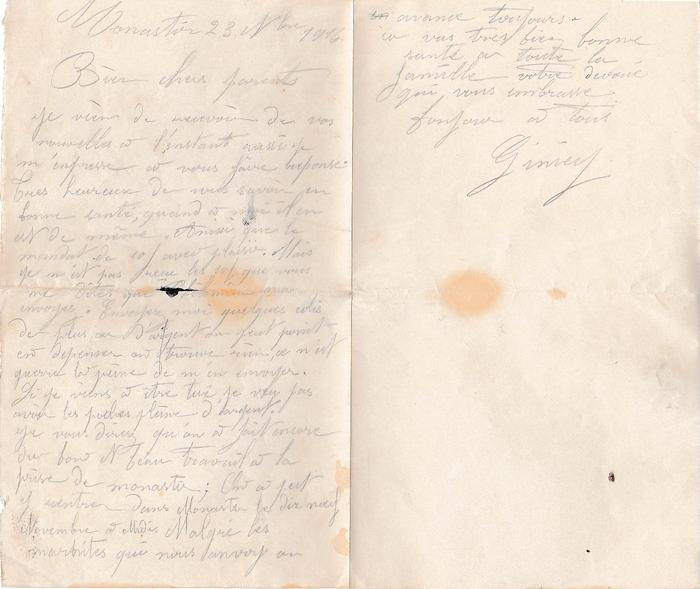 Monastir 23 Nbre 1916
Bien chers parents
je vien de recevoir de vos
nouvelles à l'instant aussi je
m'enpresse à vous faire reponse.
Tres heureux de vous savoir en
bonne santé, quand à moi il en
est de même. Ainsi que le
mandat de 10f avec plaisir. Mais
je n'est pas recue les 10f que vous
me dites que
envoyer. Envoyez moi quelques colis
de plus, car d'argent on peut point
en depenser on trouve rien, ce n'est
guerre la peine de m'en envoyer.
Si je viens à être tué je veu pas
avoir les poches pleine d'argent.
je vous direz qu'on à fait encore
du bon N beau travail à la
prise de monastir; On à
rentrer dans Monastir le dix neuf
Novembre à Midi Malgré les
marmites qui nous envoy on
avance toujours.
ca vas tres bien bonne
santé a toute la
famille votre devoué
qui vous embrasse
bonjour à tous